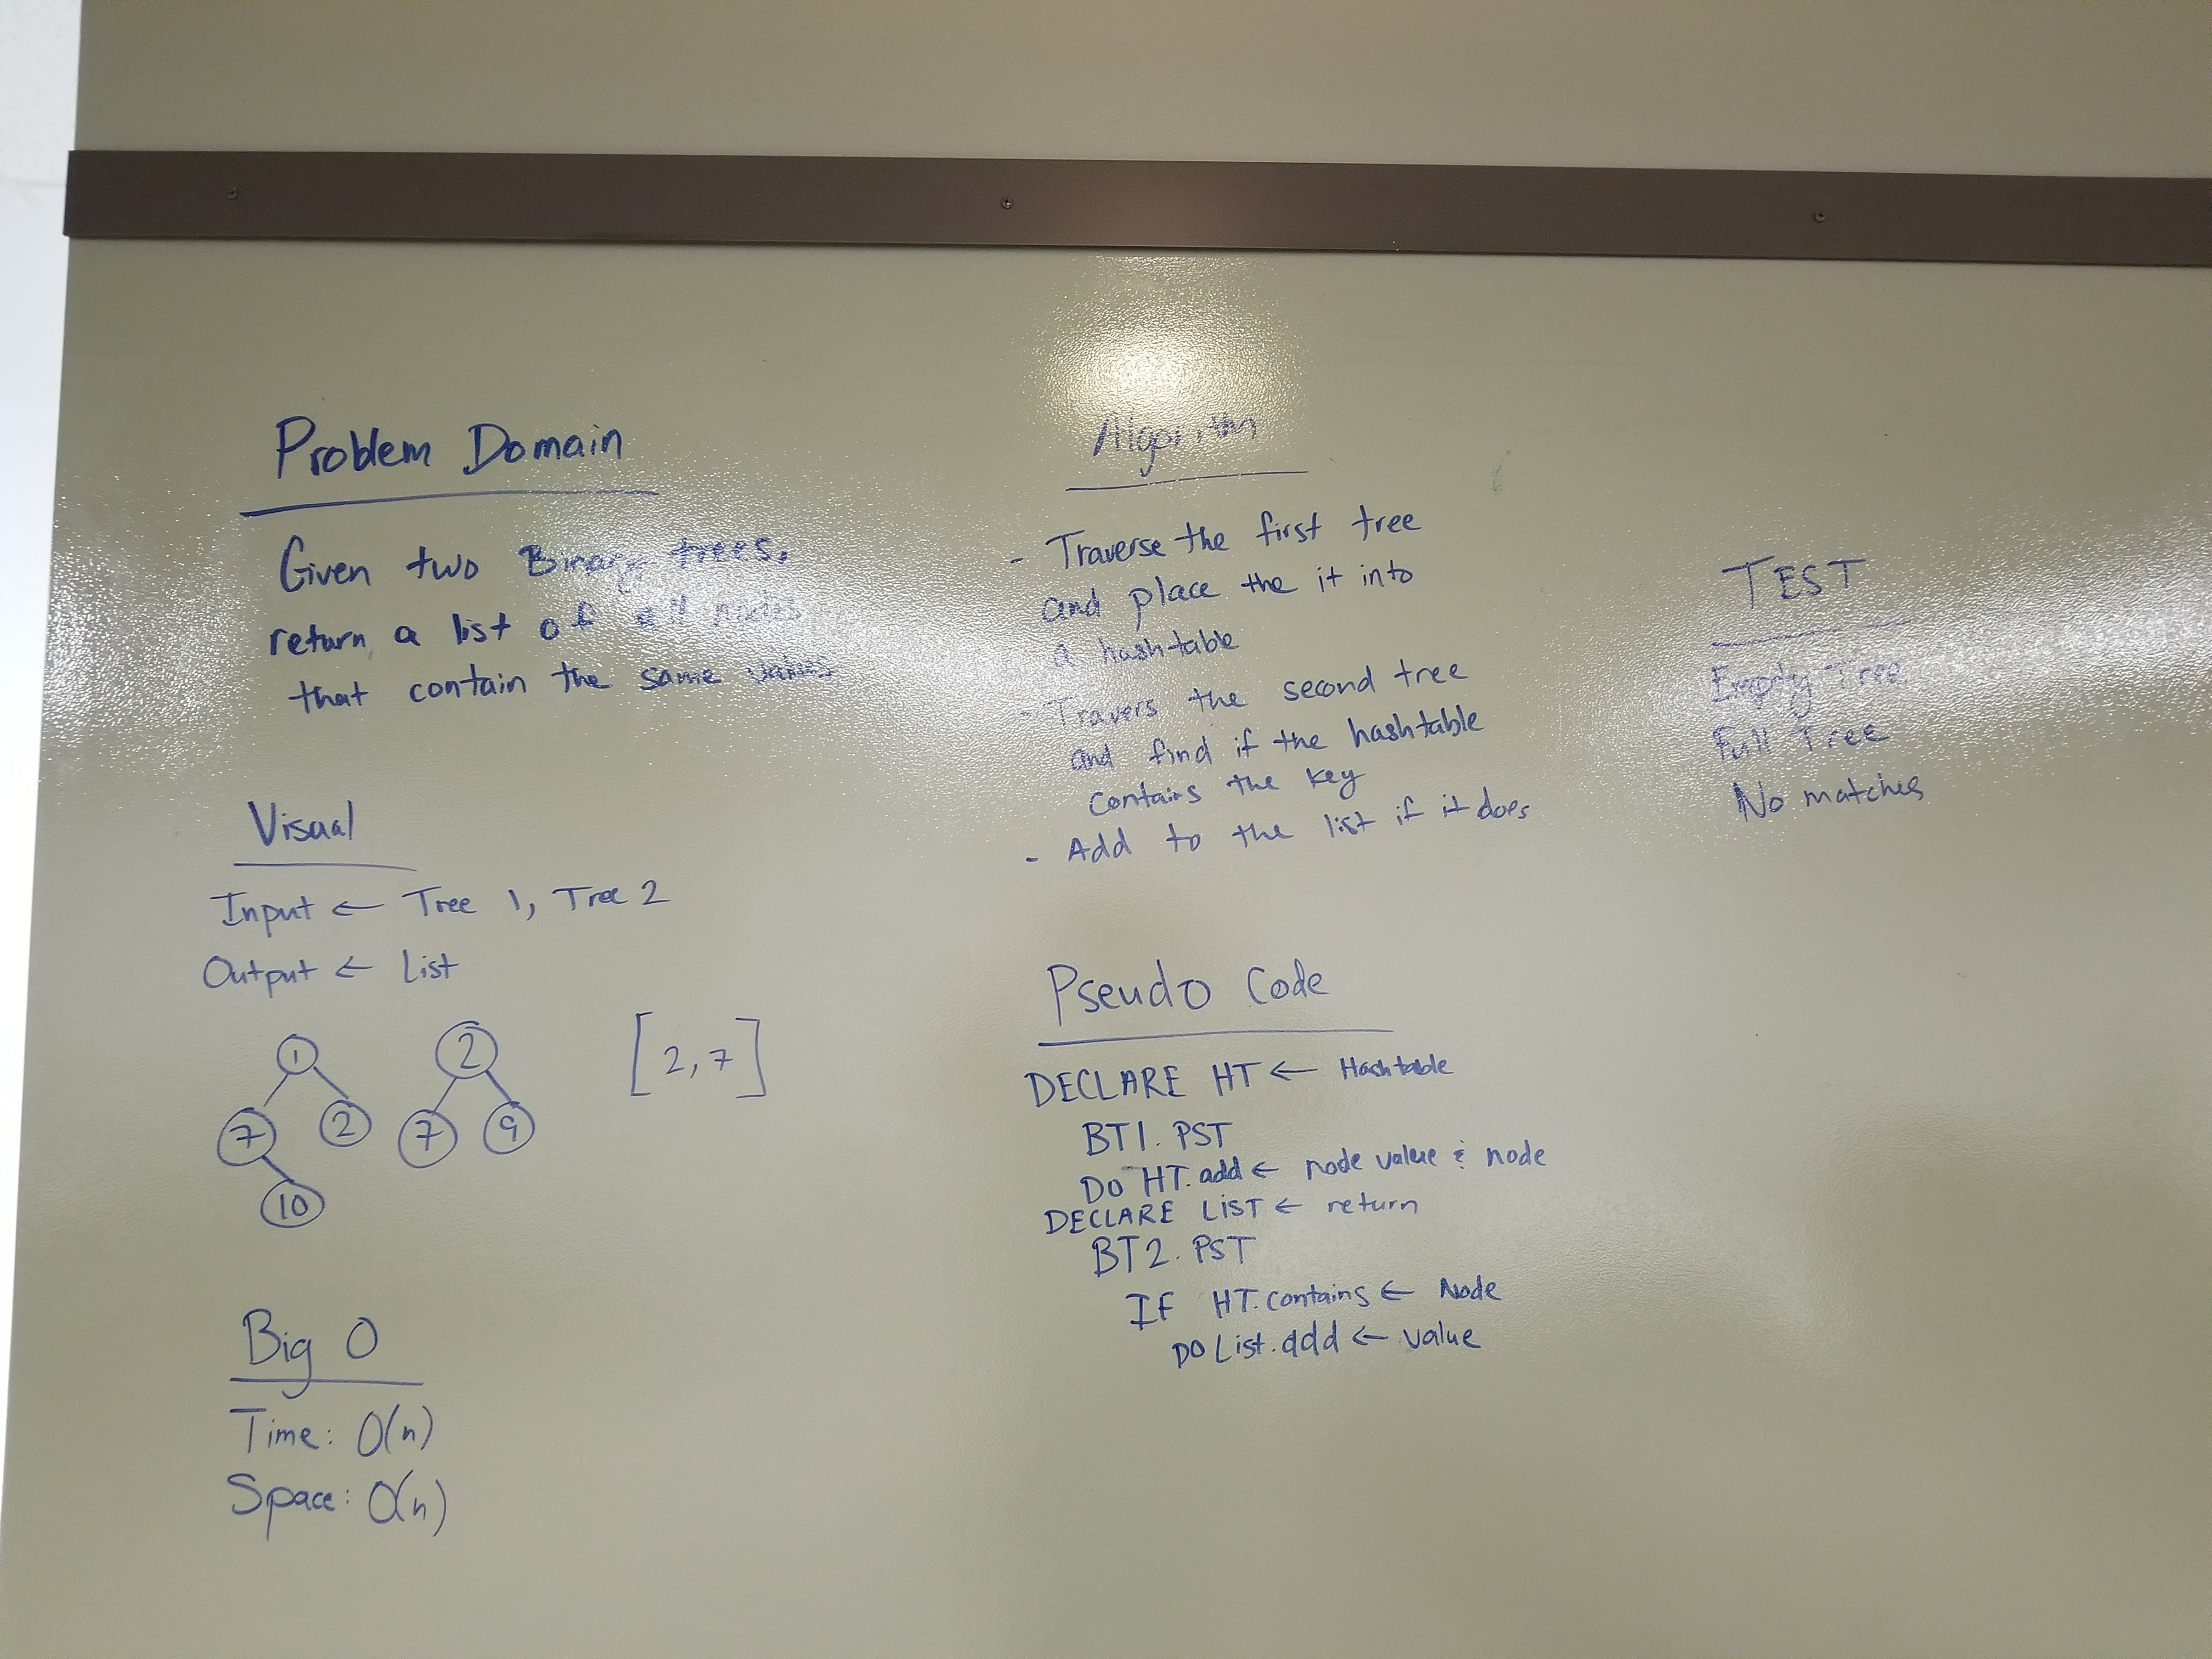 Problem Domain
Given two Binary trees,
return a list of all nodes
that contain the same values
Visual
Input ← Tree 1, Tree 2
Output ← List
1
7
2
10
2
7
9
[2,7]
Big O
Time: O(n)
Space: O(n)
Algorithm
- Traverse the first tree
and place the it into
a hashtable
- Travers the second tree
and find if the hashtable
contains the key
- Add to the list if it does
Pseudo Code
DECLARE HT ← Hashtable
BT1. PST
DO HT.add ← node value & node
DECLARE LIST ← return
BT2. PST
IF HT.contains ← Node
DO List.add ← value
TEST
Empty Tree
Full Tree
No matches